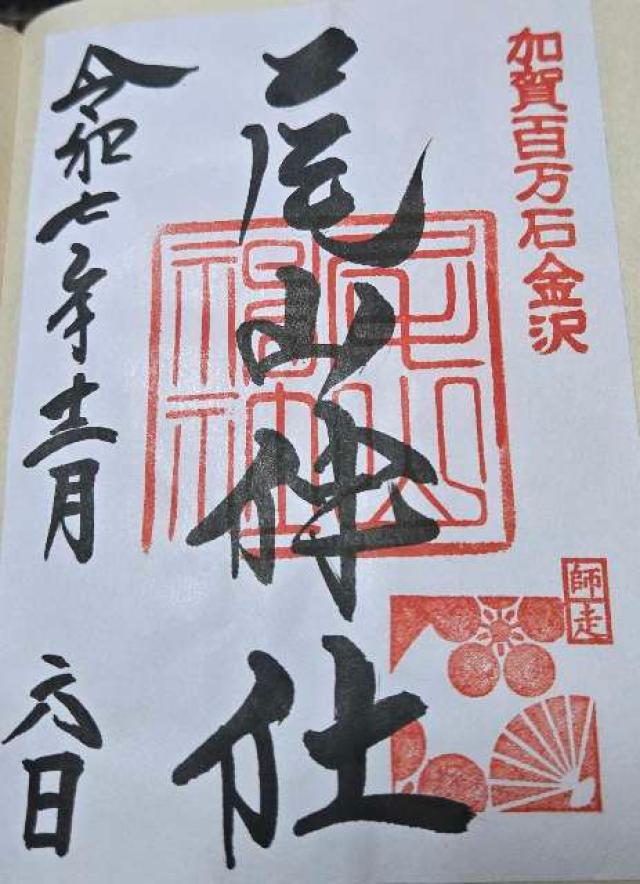 加賀百万石金沢
尾山神社
尾山神社
師走
令和七年十二月六日